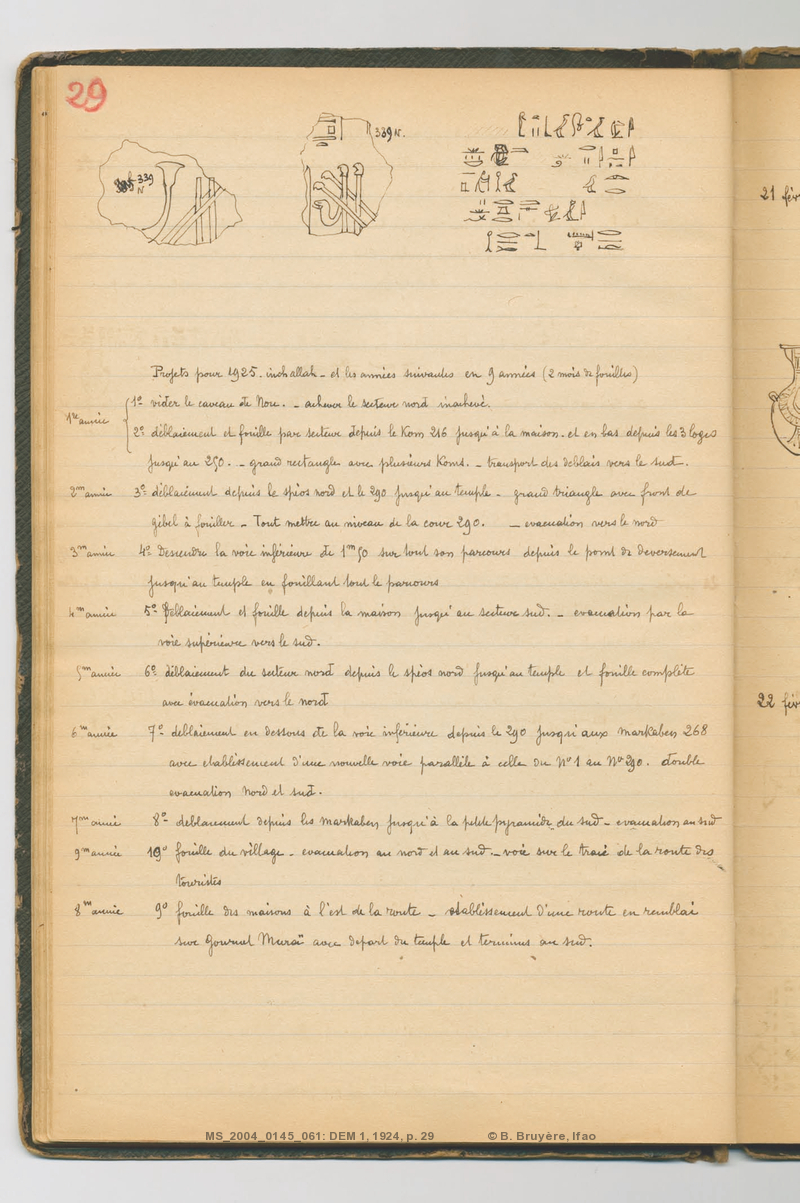 29
339 N.
339
N
21 fév
Projets pour 1925. inchallah - et les années suivantes en 9 années (2 mois de fouilles)
1re année
1º vider le caveau de Nou. - achever le secteur nord inachevé.
2º déblaiement et fouille par secteur depuis le Kom 216 jusqu'à la maison. et en bas depuis les 3 loges
jusqu'au 290. - grand rectangle avec plusieurs Koms. - transport des déblais vers le sud.
2me année 3º déblaiement depuis le spéos nord et le 290 jusqu'au temple - grand triangle avec front de
gébel à fouiller - Tout mettre au niveau de la cour 290. - evacuation vers le nord
3me année 4º Descendre la voie inférieure de 1m50 sur tout son parcours depuis le point de deversement
jusqu'au temple en fouillant tout le parcours
4me année 5º Déblaiement et fouille depuis la maison jusqu'au secteur sud. - evacuation par la
voie supérieure vers le sud.
5me année 6º déblaiement du secteur nord depuis le spéos nord jusqu'au temple et fouille complète
avec évacuation vers le nord
22 fév
6me année 7º deblaiement en dessous de la voie inférieure depuis le 290 jusqu'aux markaben 268
avec etablissement d'une nouvelle voie parallèle à celle du Nº 1 au Nº 290. double
evacuation Nord et sud.
7me année 8º deblaiement depuis les markaben jusqu'à la petite pyramide du sud - evacuation au sud
9me année 10º fouille du village - evacuation au nord et au sud. - voie sur le tracé de la route des
touristes
8me année 9º fouille des maisons à l'est de la route - etablissement d'une route en remblai
sur Gournet Muraï avec depart du temple et terminus au sud.
MS_2004_0145_061: DEM 1, 1924, p. 29 © B. Bruyère, Ifao